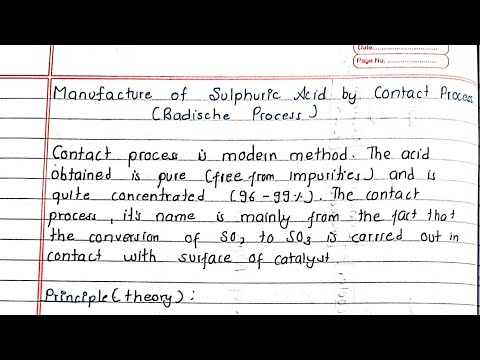 Date
Page No.
Manufacture of Sulphuric Acid by Contact Process
(Badische Process)
Contact process is modern method. The acid
obtained is pure (free from impurities) and is
quite concentrated (96-99%). The contact
process, it's name is mainly from the fact that
the conversion of SO2 to SO3 is carried out in
contact with surface of catalyst
Principle (theory) :